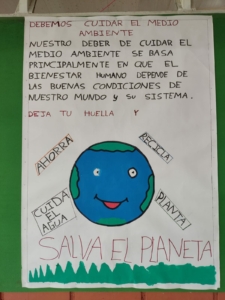 DEBEMOS CUIDAR EL MEDIO
AMBIENTE
NUESTRO DEBER DE CUIDAR EL
MEDIO AMBIENTE SE BASA
PRINCIPALMENTE EN QUE EL
BIENESTAR HUMANO DEPENDE DE
LAS BUENAS CONDICIONES DE
NUESTRO MUNDO y su SISTEMA.
DEJA TU HUELLA Y
AHORRA
RECICLA
CUIDA
EL
AGUA
PLANTA
SALVA EL PLANETA